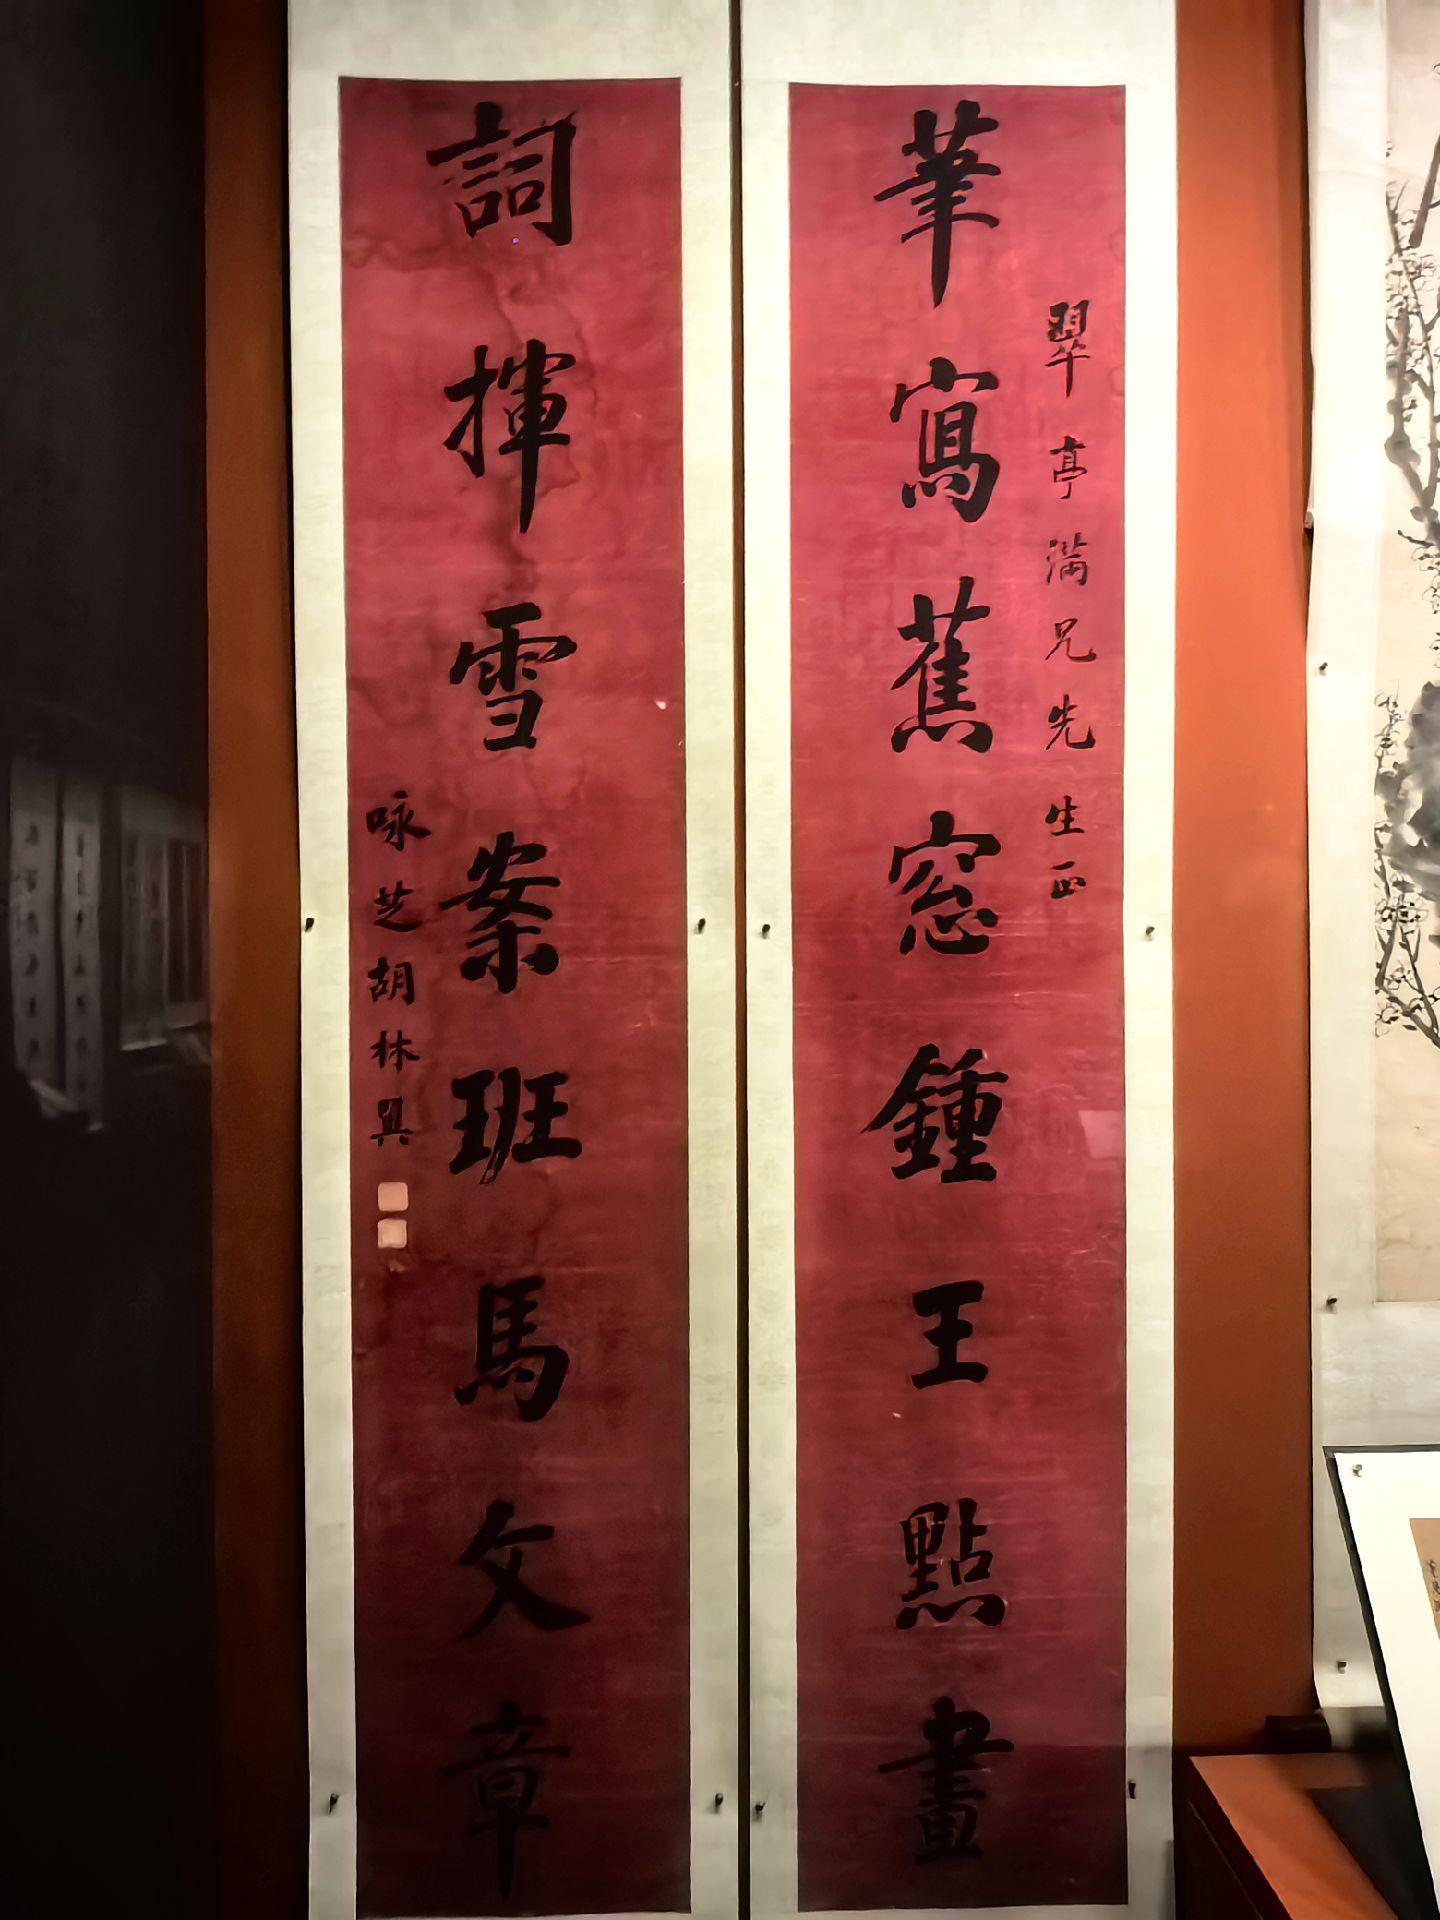 翠亭满兄先生正
筆寫蕉窓鍾王點畫
詞揮雪案班馬文章
咏芝胡林翼